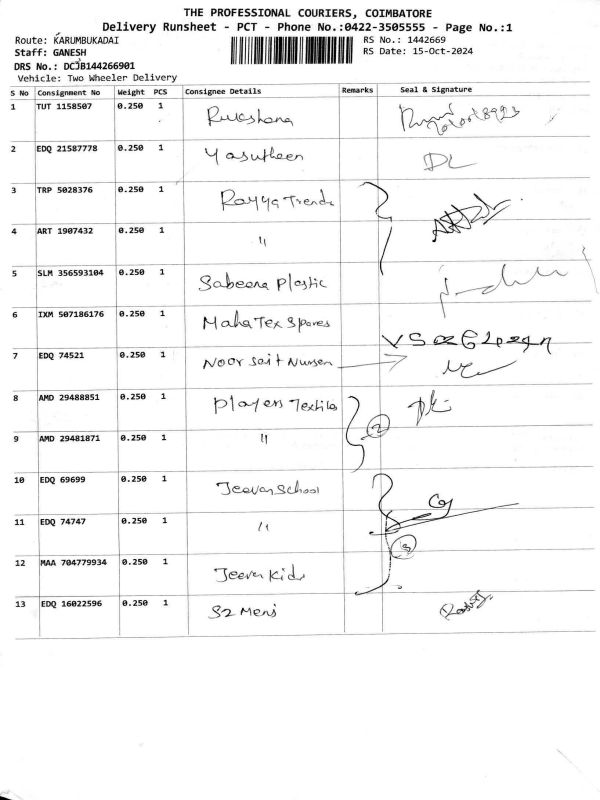 THE PROFESSIONAL COURIERS, COIMBATORE
Delivery Runsheet - PCT - Phone No.:0422-3505555 - Page No.:1
Route: KARUMBUKADAI RS No.: 1442669
Staff: GANESH RS Date: 15-Oct-2024
DRS No.: DCJB144266901
Vehicle: Two Wheeler Delivery
S No Consignment No Weight PCS Consignee Details Remarks Seal & Signature
1 TUT 1158507 0.250 1 Rukshana
2 EDQ 21587778 0.250 1 Yasutheen
3 TRP 5028376 0.250 1 Rayya Trends
4 ART 1907432 0.250 1 "
5 SLM 356593104 0.250 1 Sabeena Plastic
6 IXM 507186176 0.250 1 Maha Tex Spares
7 EDQ 74521 0.250 1 Noor Sait
8 AMD 29488851 0.250 1 Players Textiles
9 AMD 29481871 0.250 1 " 2
10 EDQ 69699 0.250 1 Jeevan School
11 EDQ 74747 0.250 1 " 3
12 MAA 704779934 0.250 1 Jeevan Kids
13 EDQ 16022596 0.250 1 S2 Mens